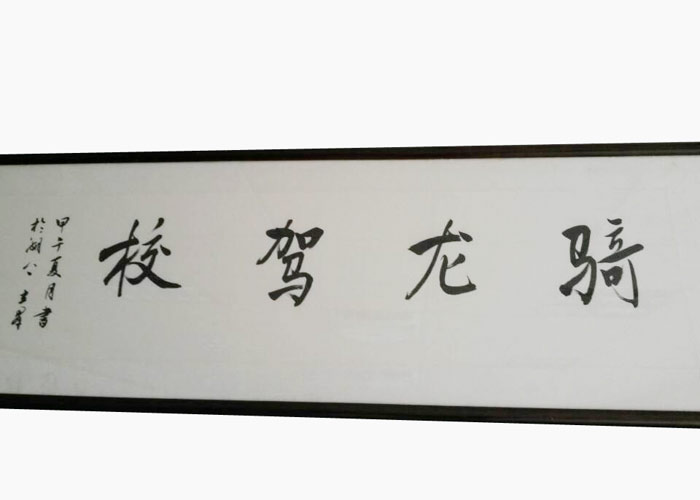 骑龙驾校
甲午夏月書
於湖